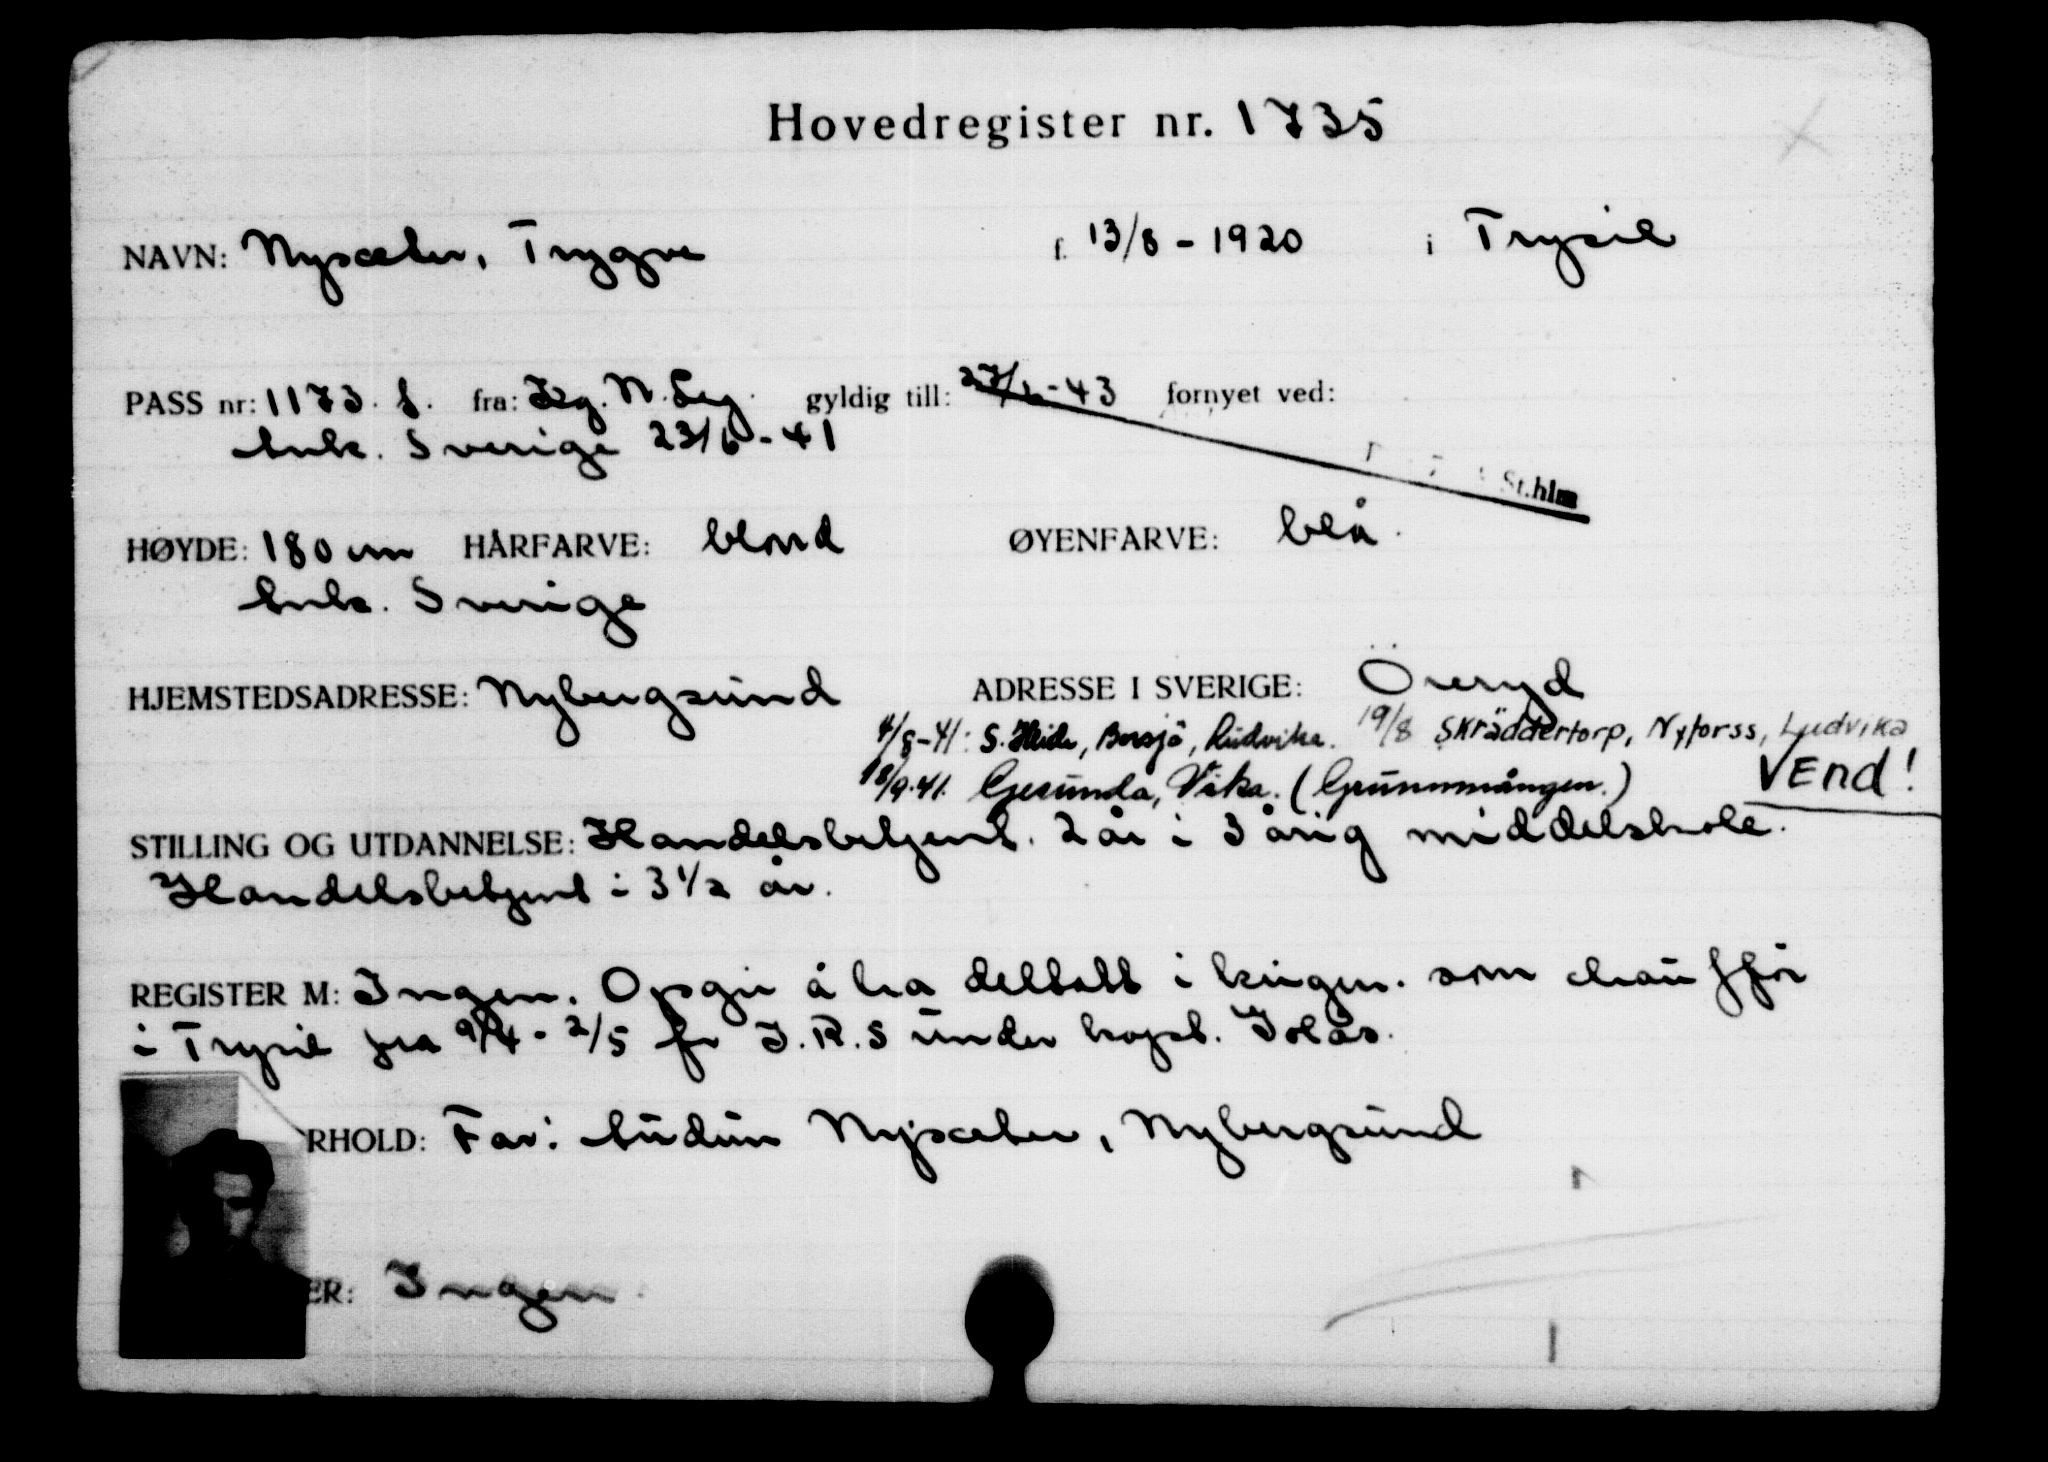 Hovedregister nr. 1735
NAVN: Nysæter, Trygve f. 13/8 - 1920 i Trysil
PASS nr: 1173. f. fra: Kg. N. Leg. gyldig till: 23/6 - 43 fornyet ved:
ank. Sverige 23/6 - 41
St.hlm
HØYDE: 180 cm HÅRFARVE: blond ØYENFARVE: blå.
ank. Sverige
HJEMSTEDSADRESSE: Nybergsund ADRESSE I SVERIGE: Öreryd
4/8-41: S. Heide, Borsjö, Ludvika. 19/8 Skräddertorp, Nyforss, Ludvika
18/9.41. Gesunda, Vika. (Grunnmången.) VEnd!
STILLING OG UTDANNELSE: Handelsbetjent. 2 år i 3 årig middelskole.
Handelsbetjent i 3 1/2 år.
REGISTER M: Ingen. Opgir å ha deltatt i krigen. som chauffør
i Trysil fra 9/4 - 2/5 for I.R.5 under kapt. Holås.
RHOLD: Far: Audun Nysæter, Nybergsund
ER: Ingen.